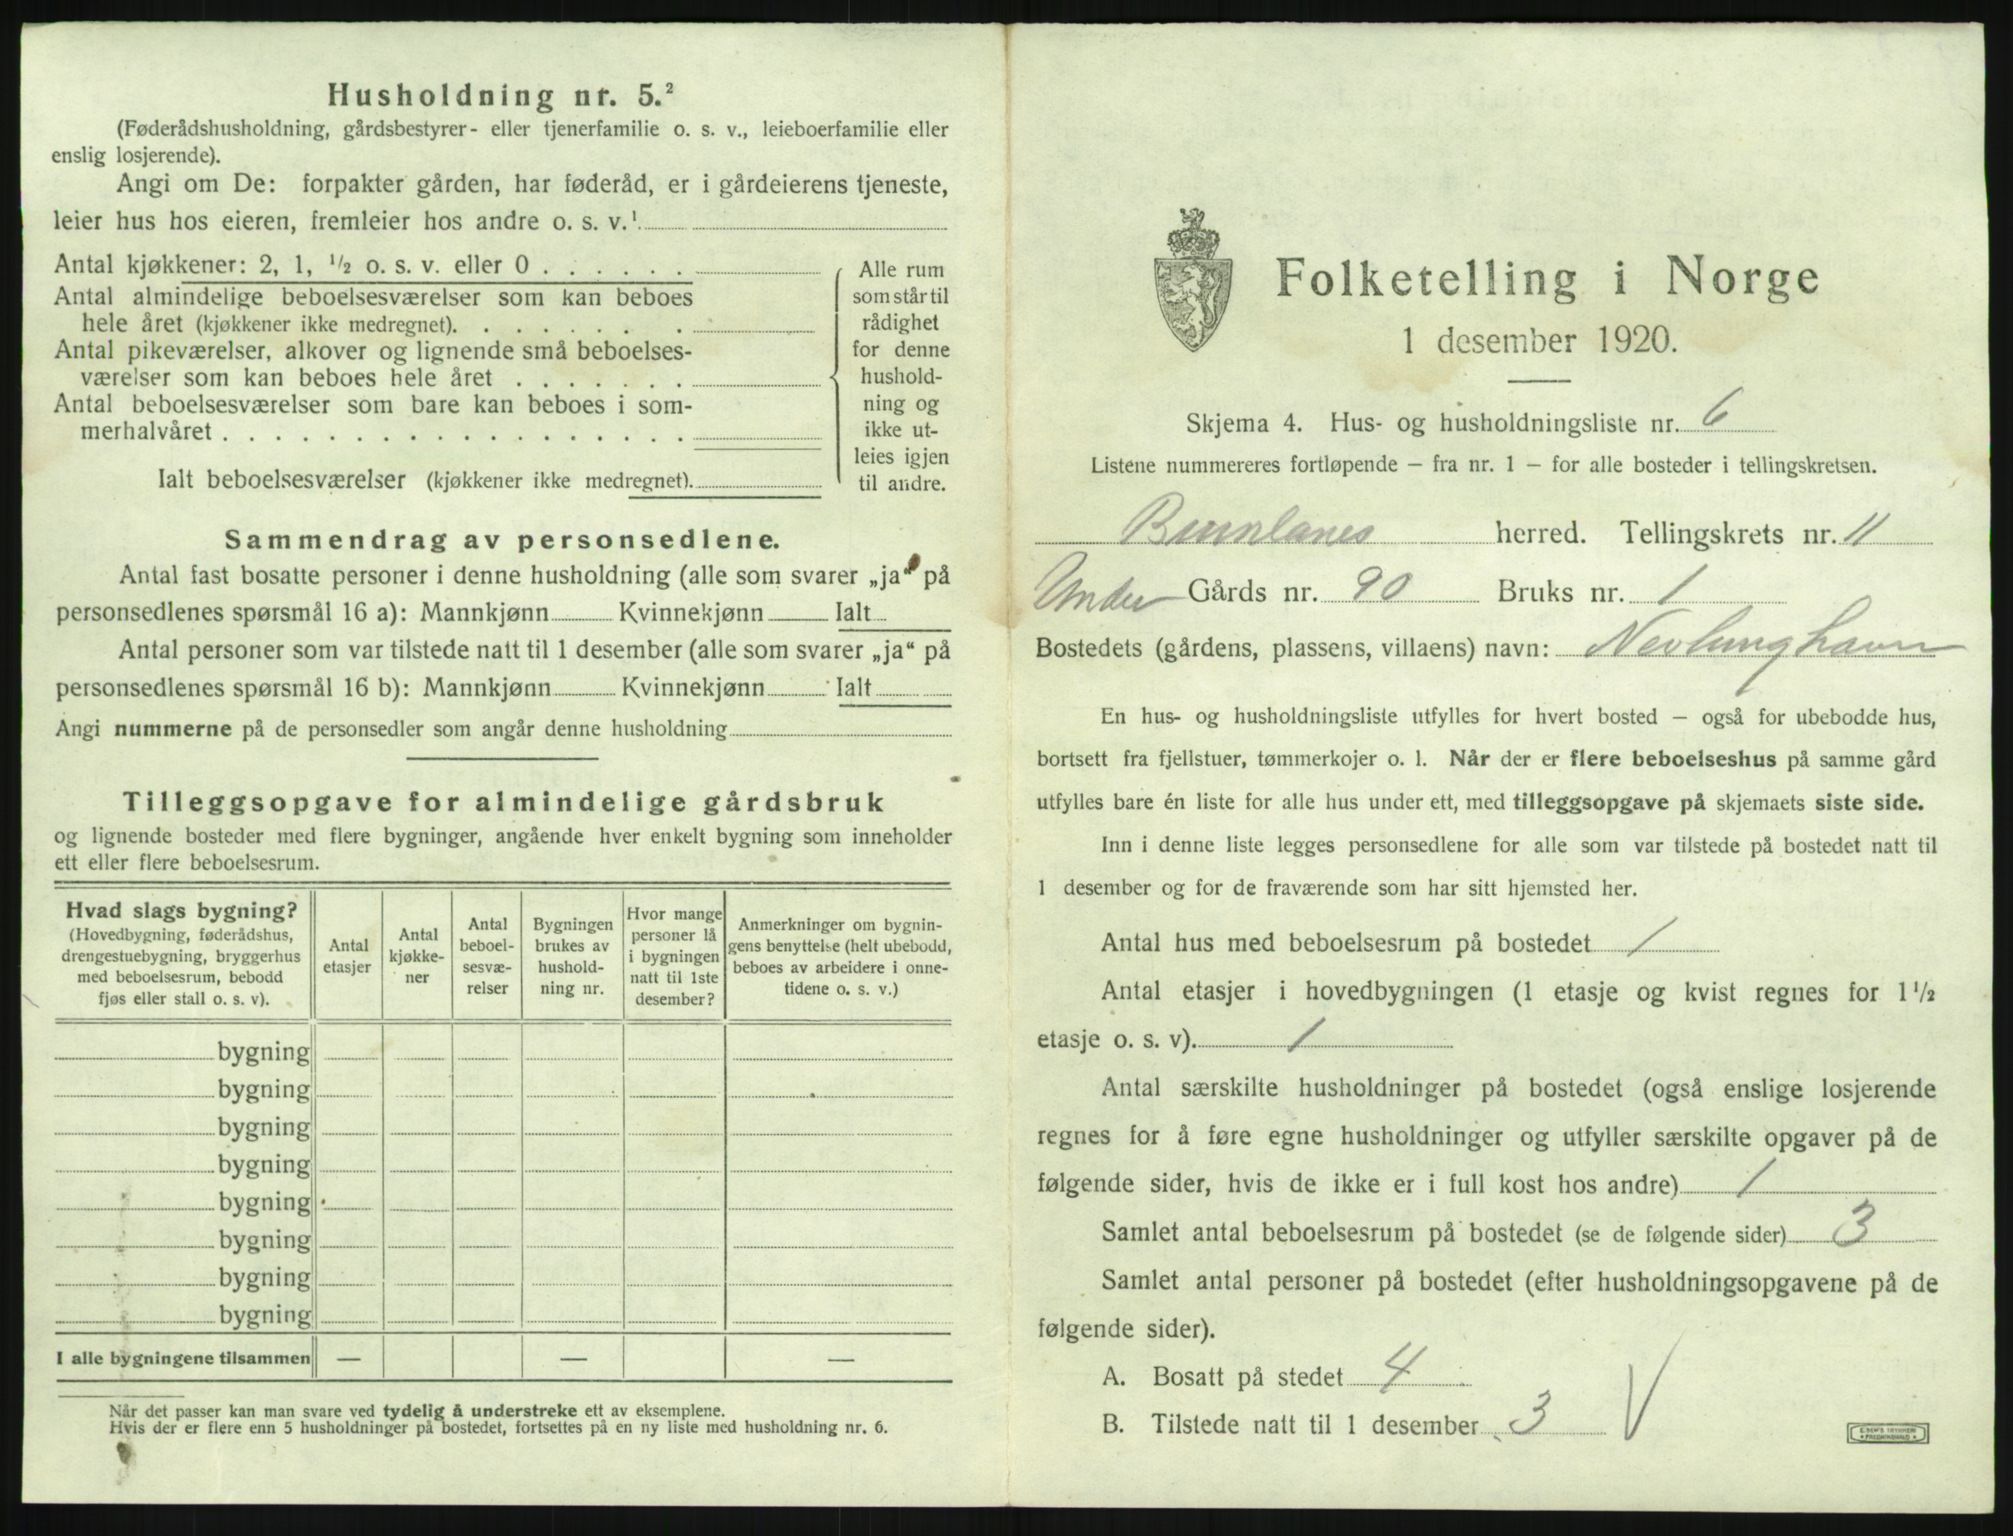 Husholdning nr. 5.²
(Føderådshusholdning, gårdsbestyrer- eller tjenerfamilie o. s. v., leieboerfamilie eller
enslig losjerende).
Angi om De: forpakter gården, har føderåd, er i gårdeierens tjeneste,
leier hus hos eieren, fremleier hos andre o. s. v.¹
Antal kjøkkener: 2, 1, ½ o. s. v. eller 0 . . . . . .
Antal almindelige beboelsesværelser som kan beboes
hele året (kjøkkener ikke medregnet). . . . . . . . .
Antal pikeværelser, alkover og lignende små beboelses-
værelser som kan beboes hele året . . . . . . .
Antal beboelsesværelser som bare kan beboes i som-
merhalvåret . . . . . . . . . . . . . . . . . .
Ialt beboelsesværelser (kjøkkener ikke medregnet).
Alle rum
som står til
rådighet
for denne
hushold-
ning og
ikke ut-
leies igjen
til andre.
Sammendrag av personsedlene.
Antal fast bosatte personer i denne husholdning (alle som svarer „ja“ på
personsedlenes spørsmål 16 a): Mannkjønn Kvinnekjønn Ialt
Antal personer som var tilstede natt til 1 desember (alle som svarer „ja“ på
personsedlenes spørsmål 16 b): Mannkjønn Kvinnekjønn Ialt
Angi nummerne på de personsedler som angår denne husholdning
Tilleggsopgave for almindelige gårdsbruk
og lignende bosteder med flere bygninger, angående hver enkelt bygning som inneholder
ett eller flere beboelsesrum.
Hvad slags bygning?
(Hovedbygning, føderådshus,
drengestuebygning, bryggerhus
med beboelsesrum, bebodd
fjøs eller stall o. s. v).
Antal
etasjer
Antal
kjøkke-
ner
Antal
beboel-
sesvæ-
relser
Bygningen
brukes av
hushold-
ning nr.
Hvor mange
personer lå
i bygningen
natt til 1ste
desember?
Anmerkninger om bygnin-
gens benyttelse (helt ubebodd,
beboes av arbeidere i onne-
tidene o. s. v.)
bygning
bygning
bygning
bygning
bygning
bygning
bygning
bygning
I alle bygningene tilsammen — — —
Når det passer kan man svare ved tydelig å understreke ett av eksemplene.
Hvis der er flere enn 5 husholdninger på bostedet, fortsettes på en ny liste med husholdning nr. 6.
Folketelling i Norge
1 desember 1920.
Skjema 4. Hus- og husholdningsliste nr. 6
Listene nummereres fortløpende — fra nr. 1 — for alle bosteder i tellingskretsen.
Brunlanes herred. Tellingskrets nr. 11
Under Gårds nr. 90 Bruks nr. 1
Bostedets (gårdens, plassens, villaens) navn: Nevlunghavn
En hus- og husholdningsliste utfylles for hvert bosted — også for ubebodde hus,
bortsett fra fjellstuer, tømmerkojer o. l. Når der er flere beboelseshus på samme gård
utfylles bare én liste for alle hus under ett, med tilleggsopgave på skjemaets siste side.
Inn i denne liste legges personsedlene for alle som var tilstede på bostedet natt til
1 desember og for de fraværende som har sitt hjemsted her.
Antal hus med beboelsesrum på bostedet 1
Antal etasjer i hovedbygningen (1 etasje og kvist regnes for 1½
etasje o. s. v). 1
Antal særskilte husholdninger på bostedet (også enslige losjerende
regnes for å føre egne husholdninger og utfyller særskilte opgaver på de
følgende sider, hvis de ikke er i full kost hos andre) 1
Samlet antal beboelsesrum på bostedet (se de følgende sider) 3
Samlet antal personer på bostedet (efter husholdningsopgavene på de
følgende sider).
A. Bosatt på stedet 4
B. Tilstede natt til 1 desember 3 V